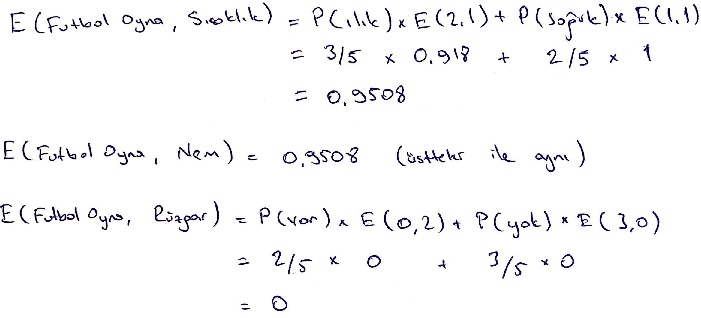 E (Futbol Oyna, Sıcaklık) = P(ılık) x E(2,1) + P(soğuk) x E(1,1)
= 3/5 x 0,918 + 2/5 x 1
= 0,9508
E (Futbol Oyna, Nem) = 0,9508 (üstteki ile aynı)
E (Futbol Oyna, Rüzgar) = P(var) x E(0,2) + P(yok) x E(3,0)
= 2/5 x 0 + 3/5 x 0
= 0